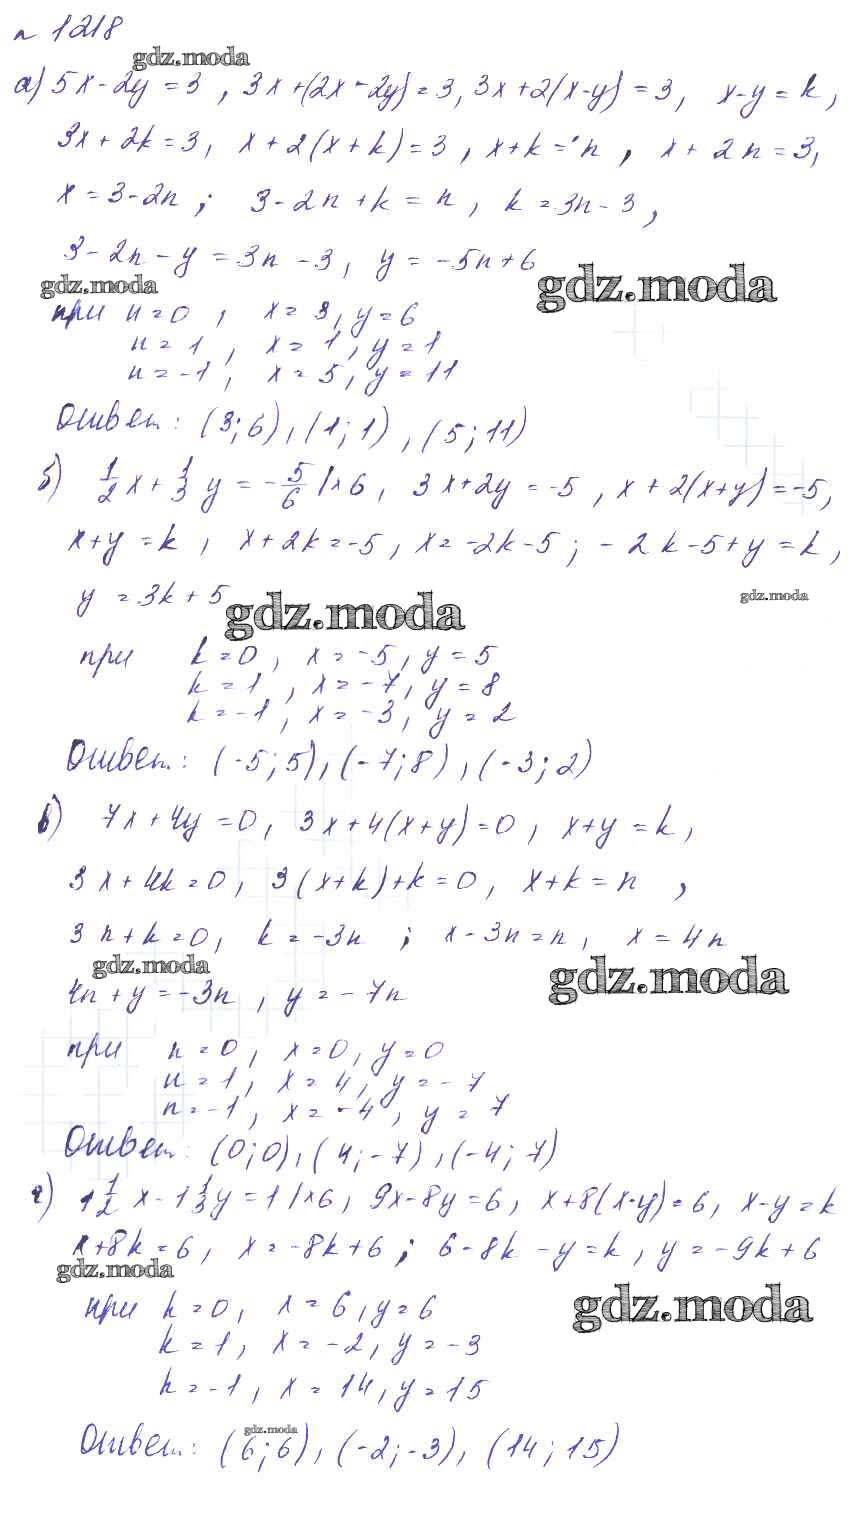 № 1218
gdz.moda
а) 5x - 2y = 3, 3x + (2x - 2y) = 3, 3x + 2(x - y) = 3, x - y = k,
3x + 2k = 3, x + 2(x + k) = 3, x + k = n, x + 2n = 3,
x = 3 - 2n; 3 - 2n + k = n, k = 3n - 3,
3 - 2n - y = 3n - 3, y = -5n + 6
gdz.moda gdz.moda
при n = 0, x = 3, y = 6
n = 1, x = 1, y = 1
n = -1, x = 5, y = 11
Ответ: (3; 6), (1; 1), (5; 11)
б) 1/2 x + 1/3 y = -5/6 | ×6, 3x + 2y = -5, x + 2(x + y) = -5,
x + y = k, x + 2k = -5, x = -2k - 5; -2k - 5 + y = k,
y = 3k + 5
gdz.moda gdz.moda
при k = 0, x = -5, y = 5
k = 1, x = -7, y = 8
k = -1, x = -3, y = 2
Ответ: (-5; 5), (-7; 8), (-3; 2)
в) 7x + 4y = 0, 3x + 4(x + y) = 0, x + y = k,
3x + 4k = 0, 3(x + k) + k = 0, x + k = n,
3n + k = 0, k = -3n; x - 3n = n, x = 4n
gdz.moda gdz.moda
4n + y = -3n, y = -7n
при n = 0, x = 0, y = 0
n = 1, x = 4, y = -7
n = -1, x = -4, y = 7
Ответ: (0; 0), (4; -7), (-4; 7)
г) 1 1/2 x - 1 1/3 y = 1 | ×6, 9x - 8y = 6, x + 8(x - y) = 6, x - y = k
x + 8k = 6, x = -8k + 6; 6 - 8k - y = k, y = -9k + 6
gdz.moda gdz.moda
при k = 0, x = 6, y = 6
k = 1, x = -2, y = -3
k = -1, x = 14, y = 15
gdz.moda
Ответ: (6; 6), (-2; -3), (14; 15)